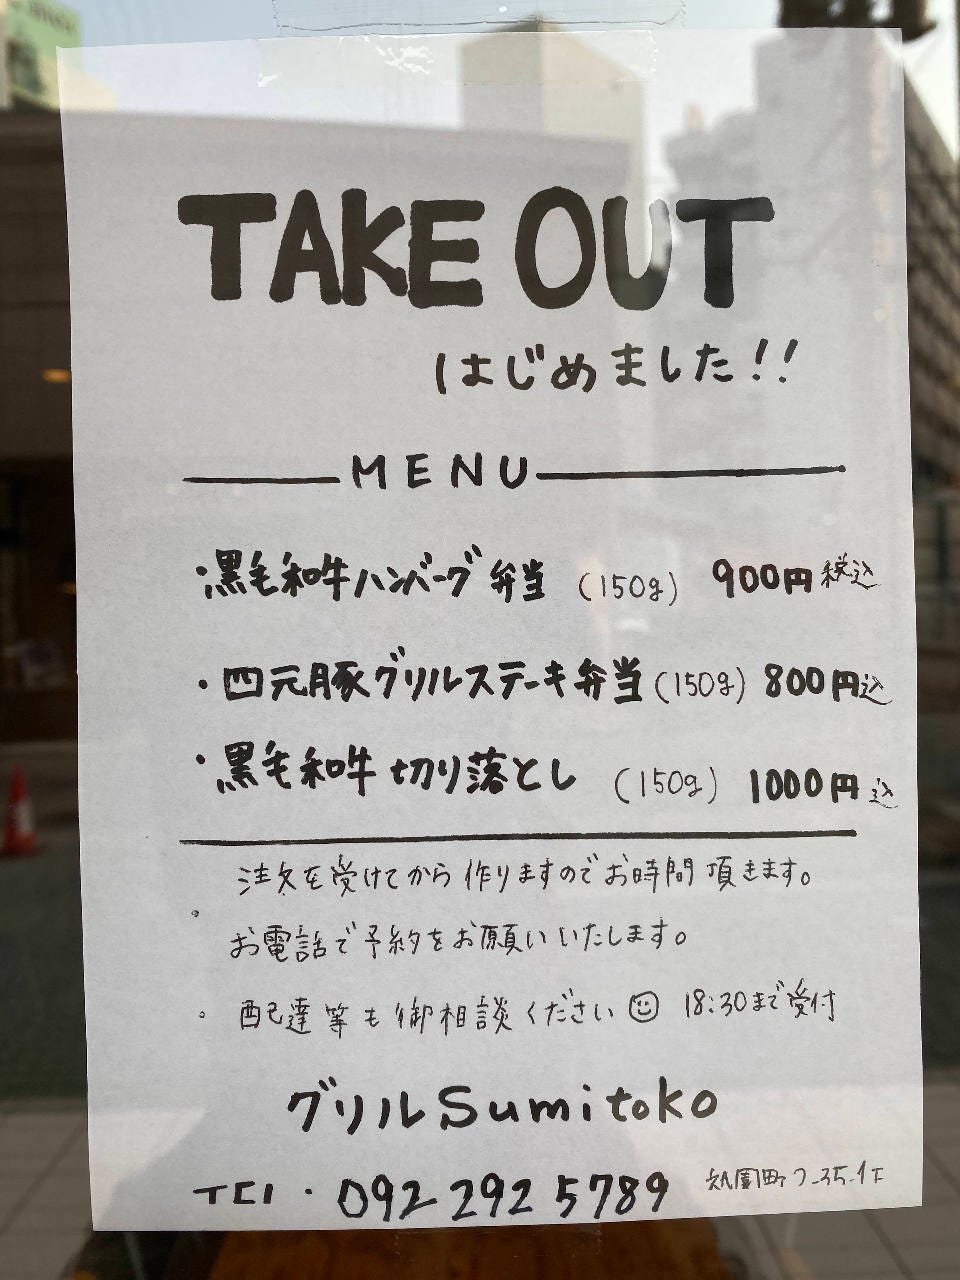 TAKE OUT
はじめました!!
MENU
・黒毛和牛ハンバーグ弁当 (150g) 900円税込
・四元豚グリルステーキ弁当 (150g) 800円込
・黒毛和牛切り落とし (150g) 1000円込
注文を受けてから作りますのでお時間頂きます。
。お電話で予約をお願いいたします。
。配達等も御相談ください☺ 18:30まで受付
グリルSumitoko
TEl・092 292 5789
祇園町